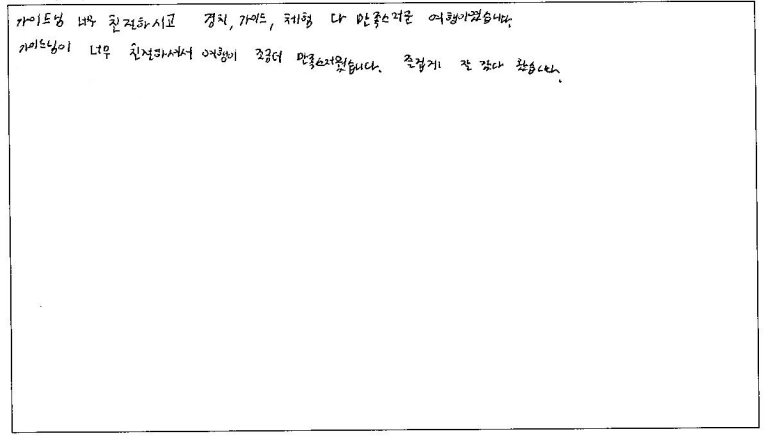 가이드님 너무 친절하시고 경치, 가이드, 체험 다 만족스러운 여행이였습니다.
가이드님이 너무 친절하셔서 여행이 조금더 만족스러웠습니다. 즐겁게 잘 갔다 왔습니다.